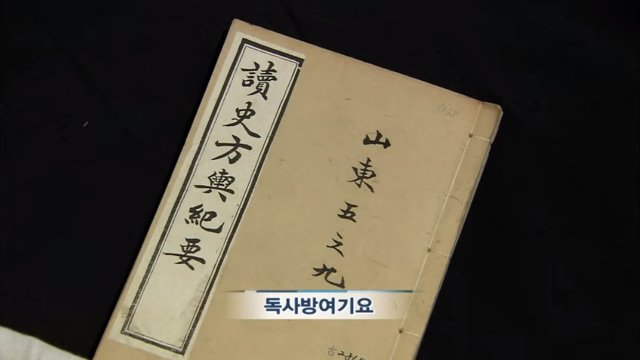 讀史方輿紀要
山東五之九
독사방여기요